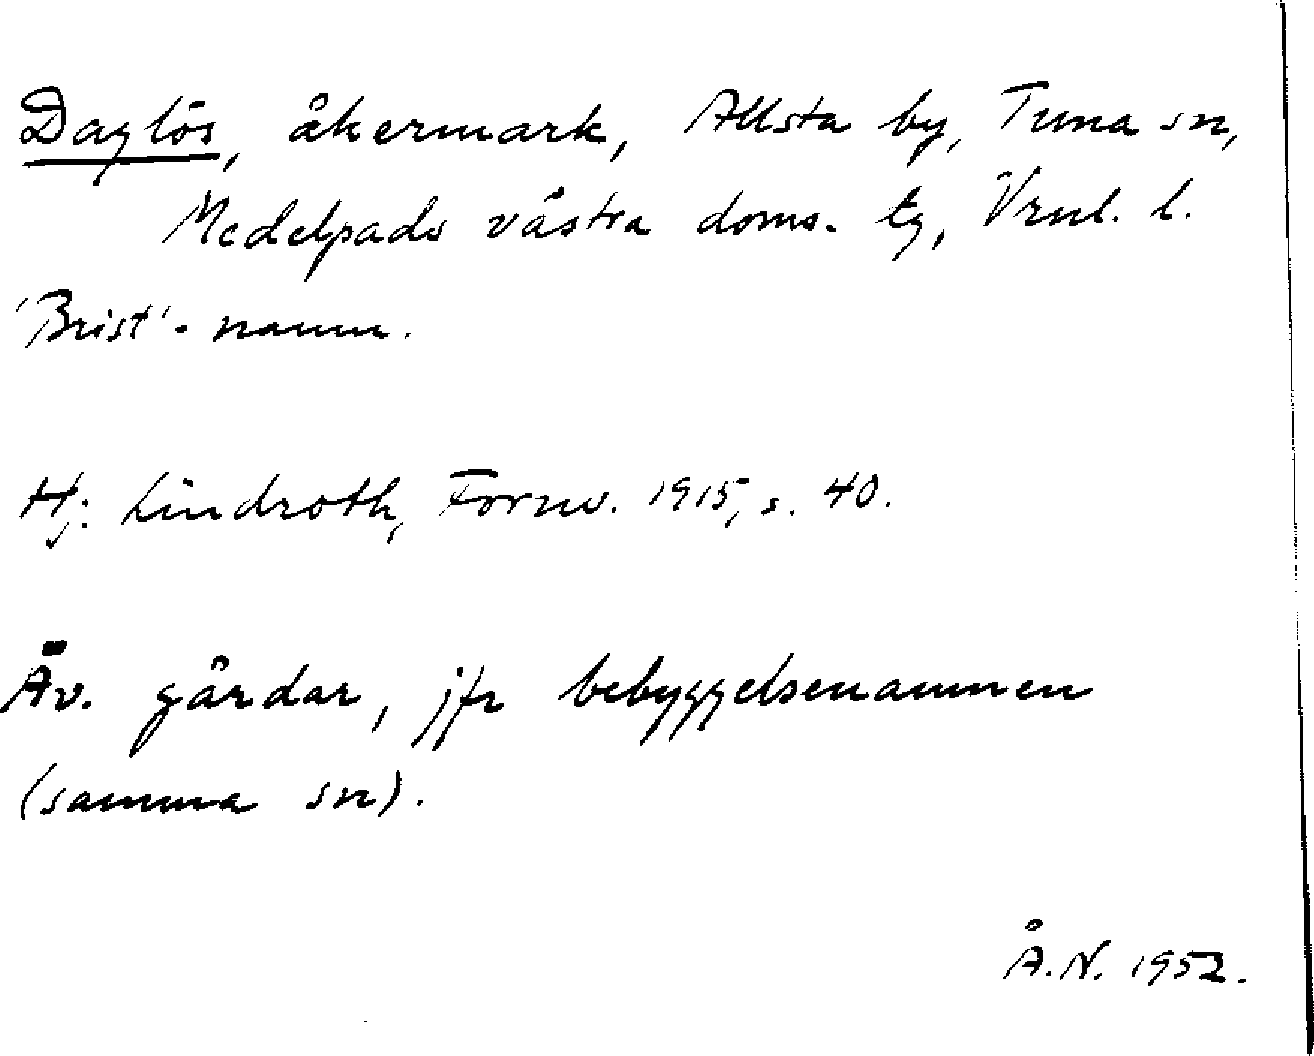 Daglös, åkermark, Allsta by, Tuna sn,
Medelpads västra doms. tg, Vrnl. l.
'Brist'-namn.
Hj. Lindroth, Fornv. 1915, s. 40.
Äv. gårdar, jfr bebyggelsenamnen
(samma sn).
Å.N. 1952.